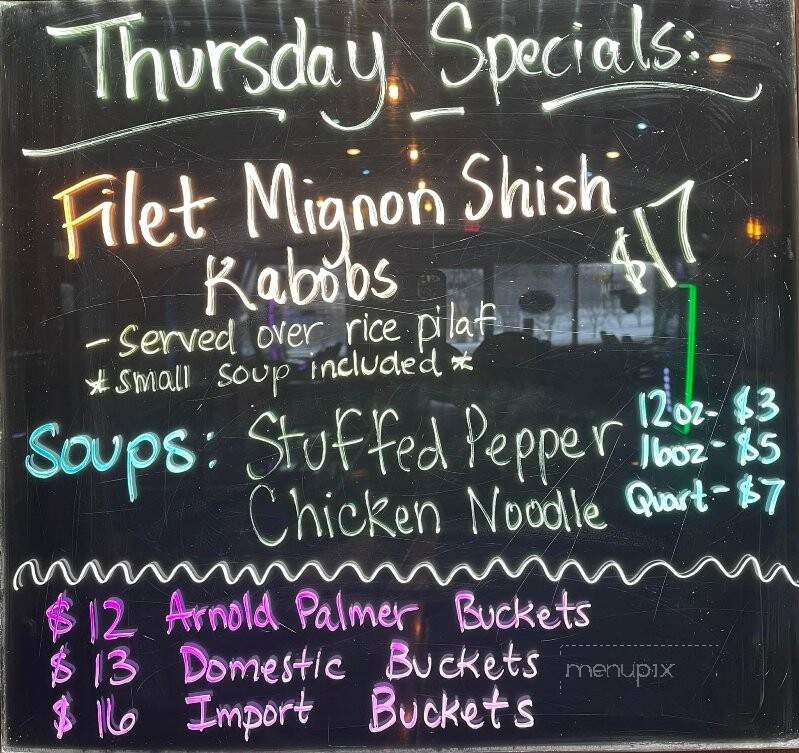 Thursday Specials:
Filet Mignon Shish
Kabobs
$17
- served over rice pilaf
* small soup included *
Soups: Stuffed Pepper
Chicken Nooodle
12oz - $3
16oz - $5
Quart - $7
$12 Arnold Palmer Buckets
$13 Domestic Buckets
$16 Import Buckets
menupix